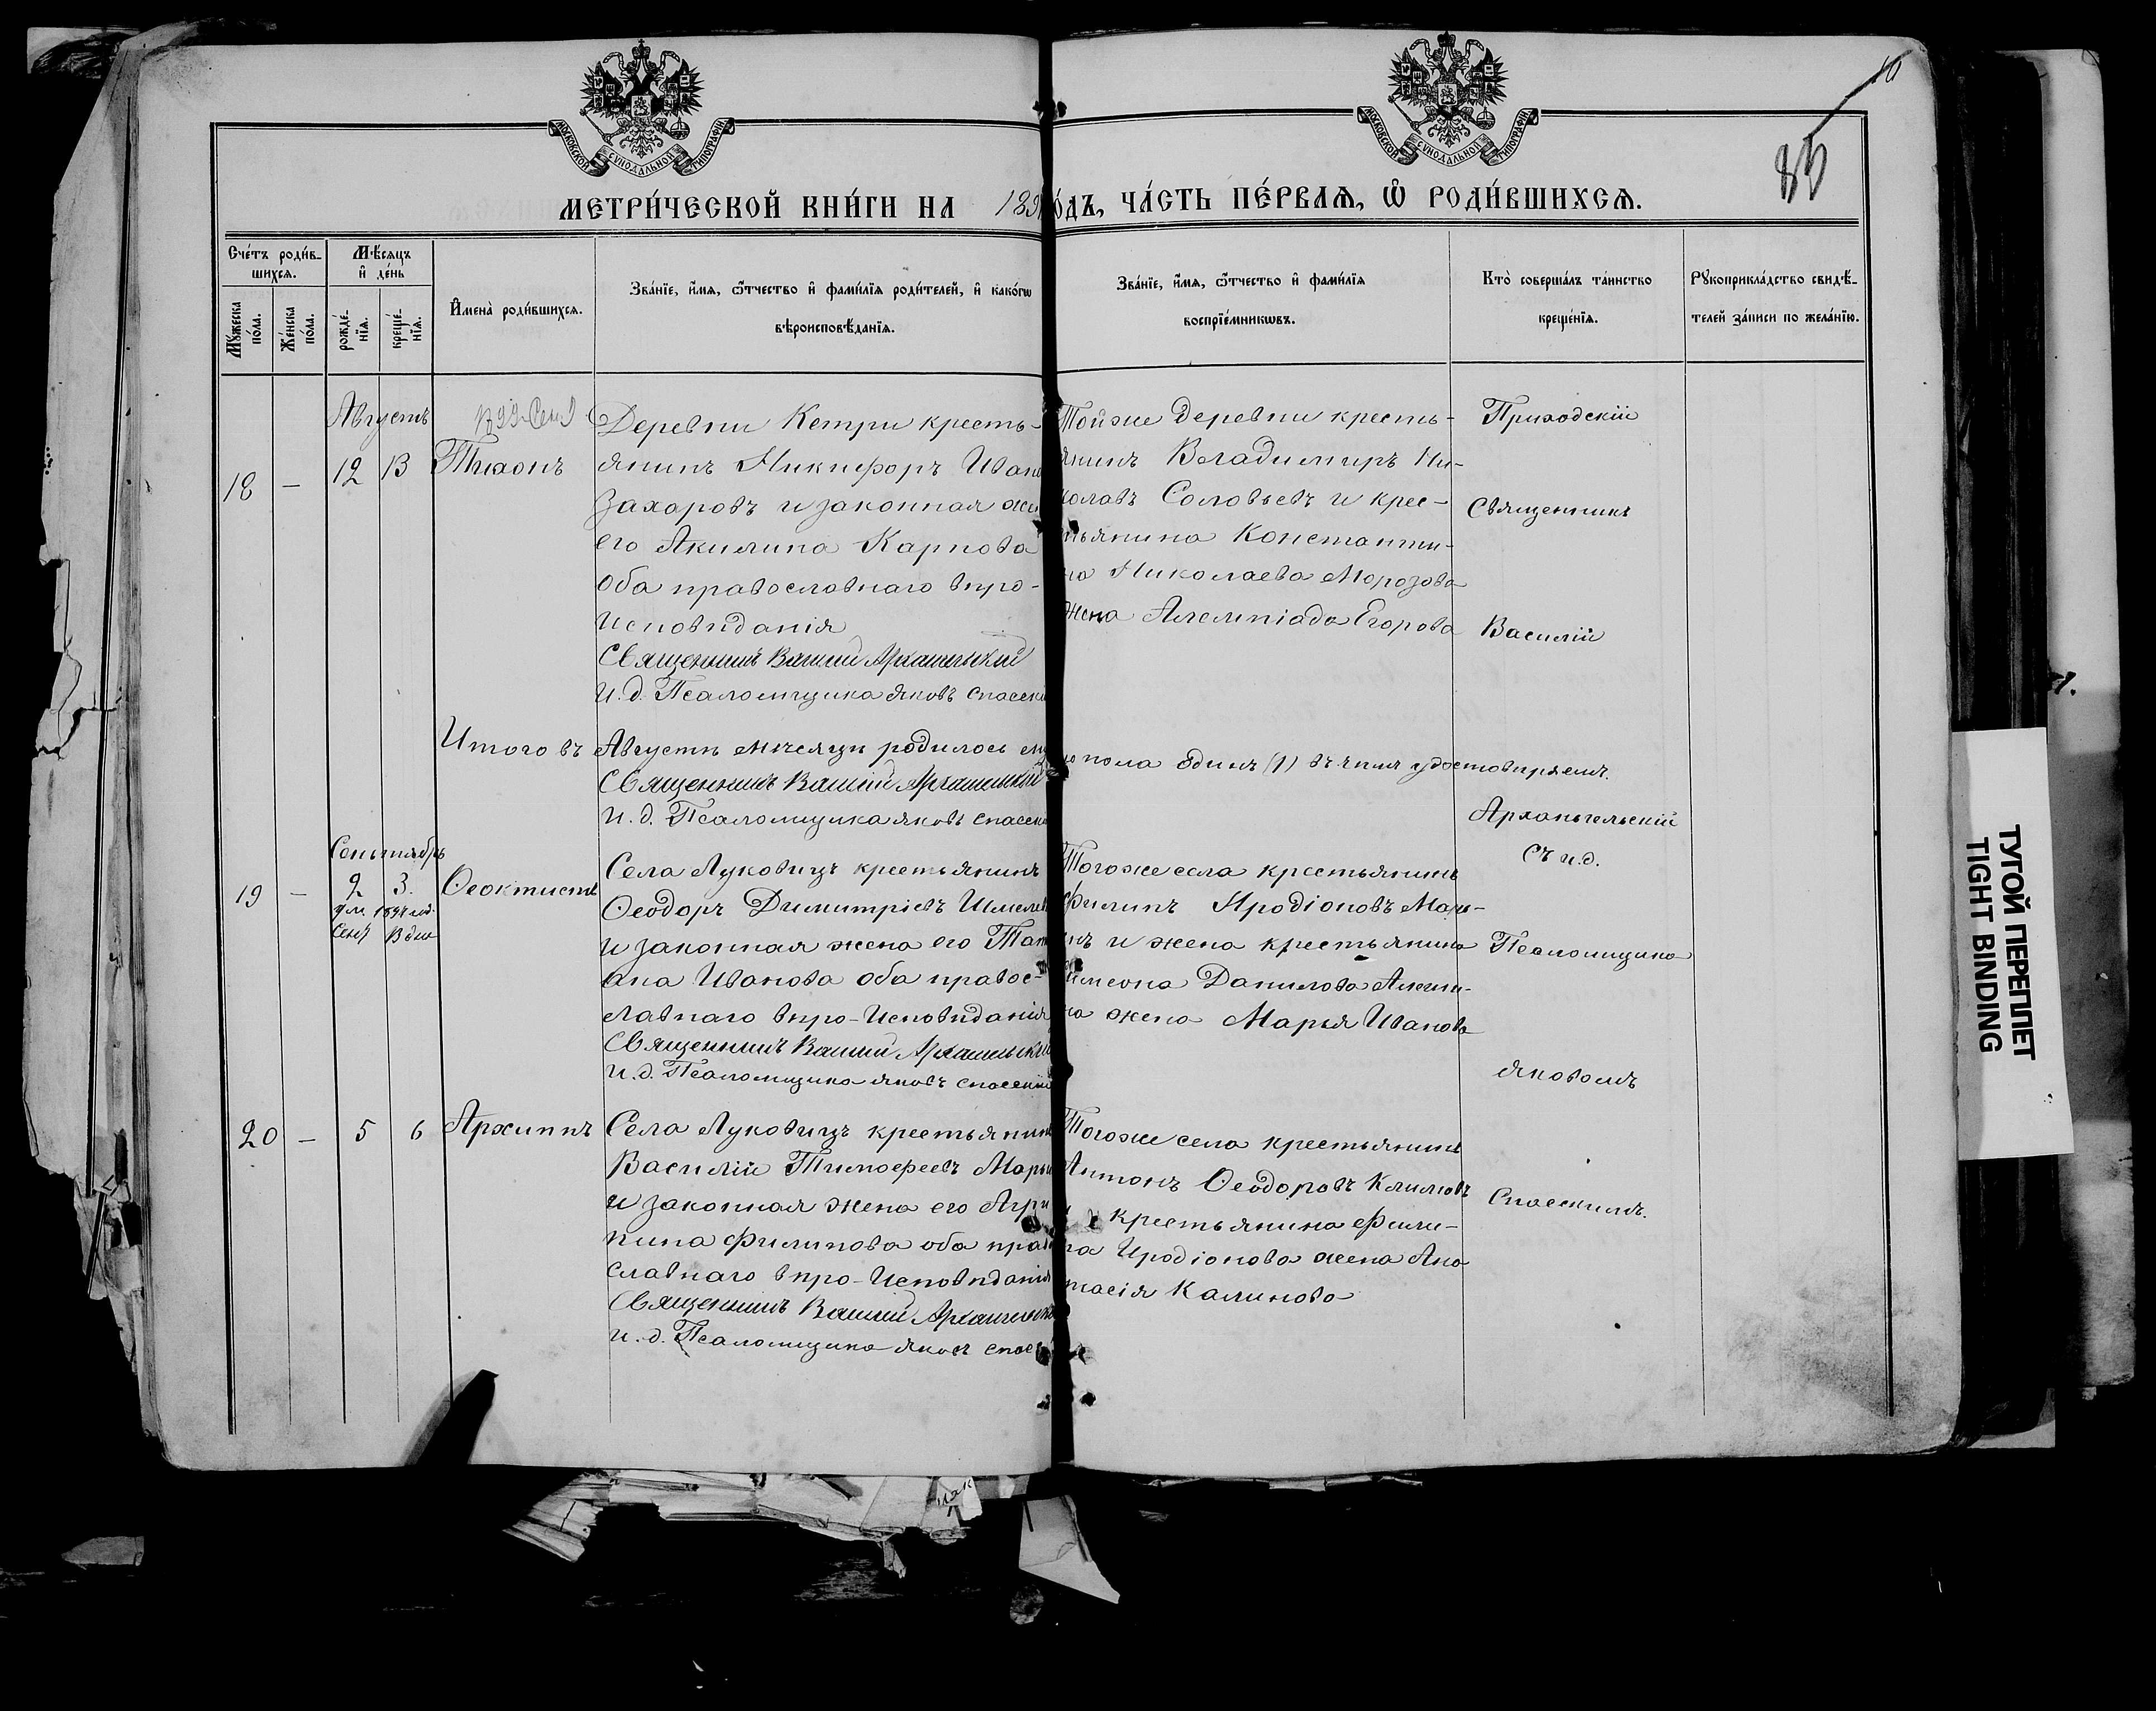 МОСКОВСКОЙ СУНОДАЛЬНОЙ ТИПОГРАФІИ
МОСКОВСКОЙ СУНОДАЛЬНОЙ ТИПОГРАФІИ
85
МЕТРИ́ЧЕСКОЙ КНИ́ГИ НА 189
О́ДЪ, ЧА́СТЬ ПЕ́РВАѦ, Ѿ РОДИ́ВШИХСѦ.
Сче́тъ роди́в-
шихсѧ.
Мѣ́сѧцъ
и де́нь
Мꙋ́жеска по́ла.
Же́нска по́ла.
рожде́-
нїѧ.
креще́-
нїѧ.
Имена̀ роди́вшихсѧ.
Зва́нїе, и́мѧ, ѻ́тчество и фами́лїѧ роди́телей, и како́гѡ
вѣроисповѣ́данїѧ.
Зва́нїе, и́мѧ, ѻ́тчество и фами́лїѧ
воспрїе́мникѡвъ.
Кто̀ соверша́лъ та́инство
креще́нїѧ.
Рꙋкоприкла́дство свидѣ́-
телей за́писи по жела́нїю.
Августъ
18 — 12 13 Тихонъ
Деревни Кетри кресть-
янинъ Никифоръ Иван
Захаровъ и законная же
его Акилина Карпова
оба православнаго вѣро-
исповѣданія
Священникъ Василий Архангельский
И. д. Псаломщика Яковъ Спасск
Тойже деревни кресть-
янинъ Владимиръ Ни-
колавъ Соловьевъ и крес-
тьянина Константи-
на Николаева Морозова
жена Алемпіада Егорова
Приходскій
Священникъ
Василій
Итого въ Августѣ мѣсяцѣ родилось му
го пола одинъ (1) въ чемъ удостовѣряемъ.
Священникъ Василий Архангельский
И. д. Псаломщика Яковъ Спасск
Архангельскій
съ и. д.
Псаломщика
Яковомъ
Спасскимъ.
Сентябрь
19 — 2 3. Ѳеоктистъ
ум. 1894 год.
Сент
Села Луковицъ крестьянинъ
Ѳеодоръ Димитріевъ Шмелев
и законная жена его Тат
ана Иванова оба правос-
лавнаго вѣро-исповѣданія
Священникъ Василий Архангельский
И. д. Псаломщика Яковъ Спасский
Тогоже села крестьянинъ
Филипъ Иродіоновъ Марь-
инъ и жена крестьянина
Симеона Данилова Алеши-
на жена Марья Иванова
20 — 5 6 Архиппъ
Села Луковицъ крестьянинъ
Василій Тимофеевъ Марьи
и законная жена его Агри
пина Филипова оба прав
славнаго вѣро-исповѣданія
Священникъ Василий Архангельск
И. д. Псаломщика Яковъ Спас
Тогоже села крестьянинъ
Антонъ Ѳеодоровъ Климовъ
и крестьянина Фили-
па Иродіонова жена Ана
тасія Калинова
ТУГОЙ ПЕРЕПЛЕТ
TIGHT BINDING